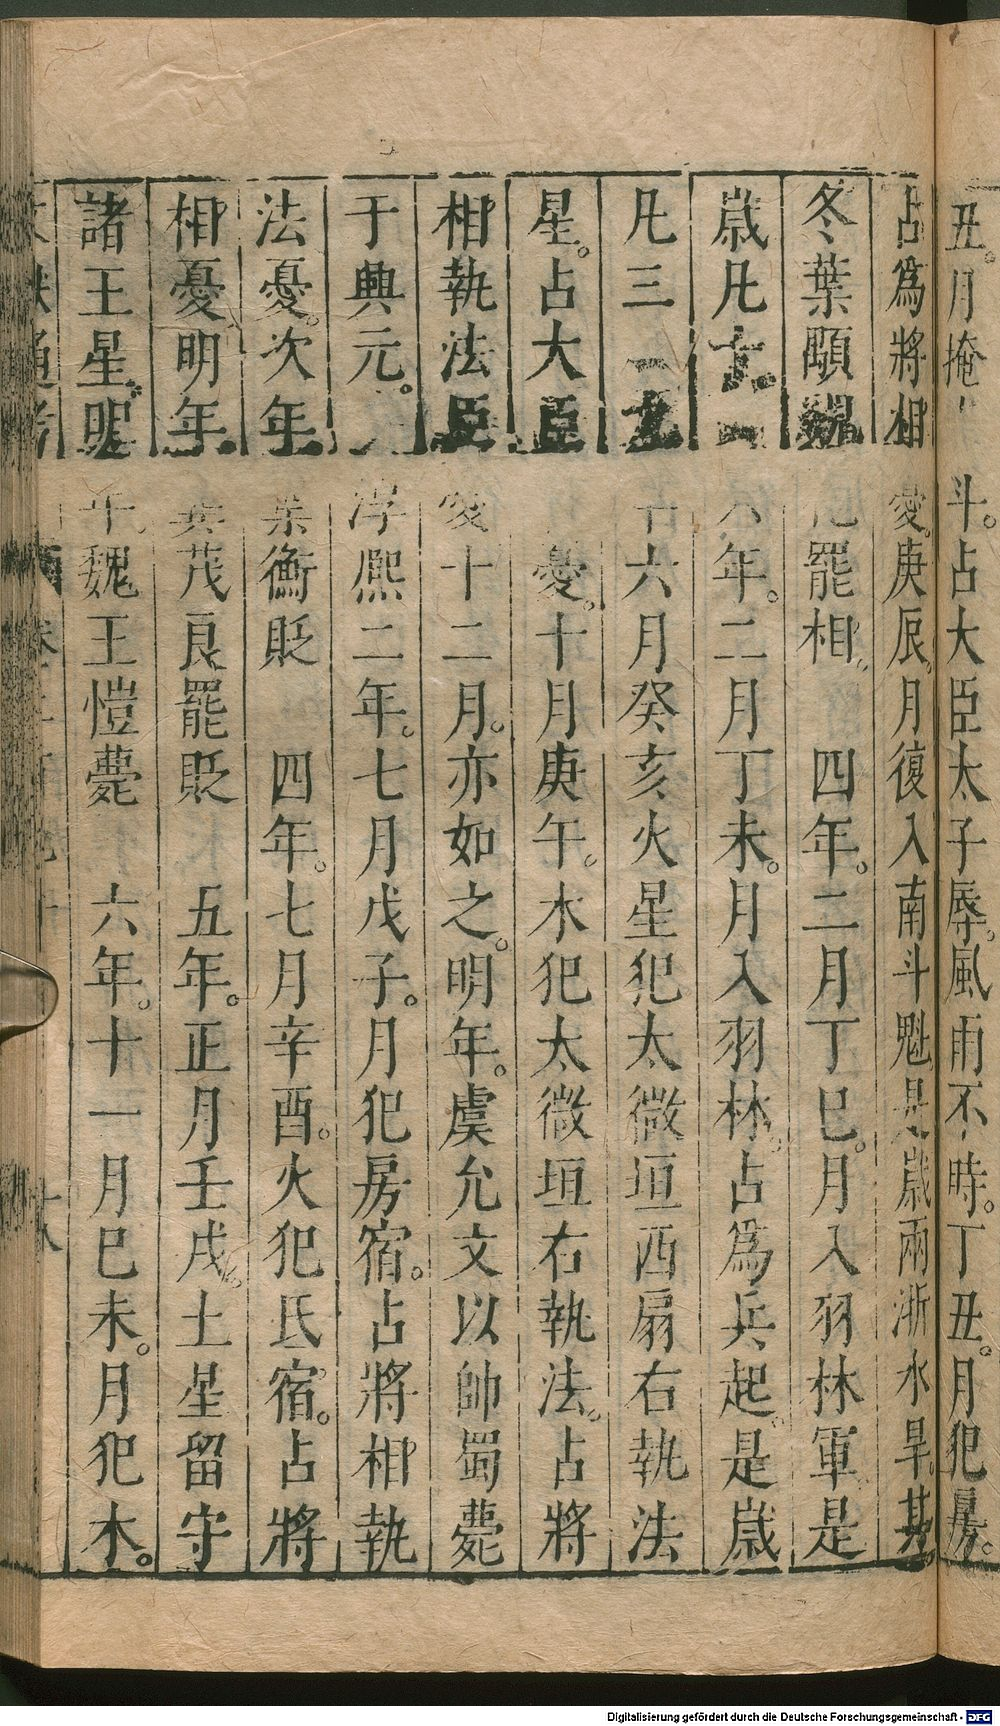 丑。月掩 斗。占大臣太子辱。風雨不時。丁丑。月犯房。
占爲將相憂。庚辰。月復入南斗魁。是歲兩浙水旱。其
冬葉顒魏 罷相。 四年。二月丁巳。月入羽林軍。是
歲凡 六年。二月丁未。月入羽林。占爲兵起。是歲
凡三 六月癸亥火星犯太微垣西扇右執法
星。占大臣憂。十月庚午。木犯太微垣右執法。占將
相執法臣憂十二月。亦如之。明年。虞允文以帥蜀薨
于興元。 淳熙二年。七月戊子。月犯房宿。占將相執
法憂。次年。葉衡貶 四年。七月辛酉。火犯氐宿。占將
相憂。明年。 茂良罷貶 五年。正月壬戌。土星留守
諸王星。明年。魏王愷薨 六年。十一月巳未。月犯木。
文獻通考
Digitalisierung gefördert durch die Deutsche Forschungsgemeinschaft - DFG